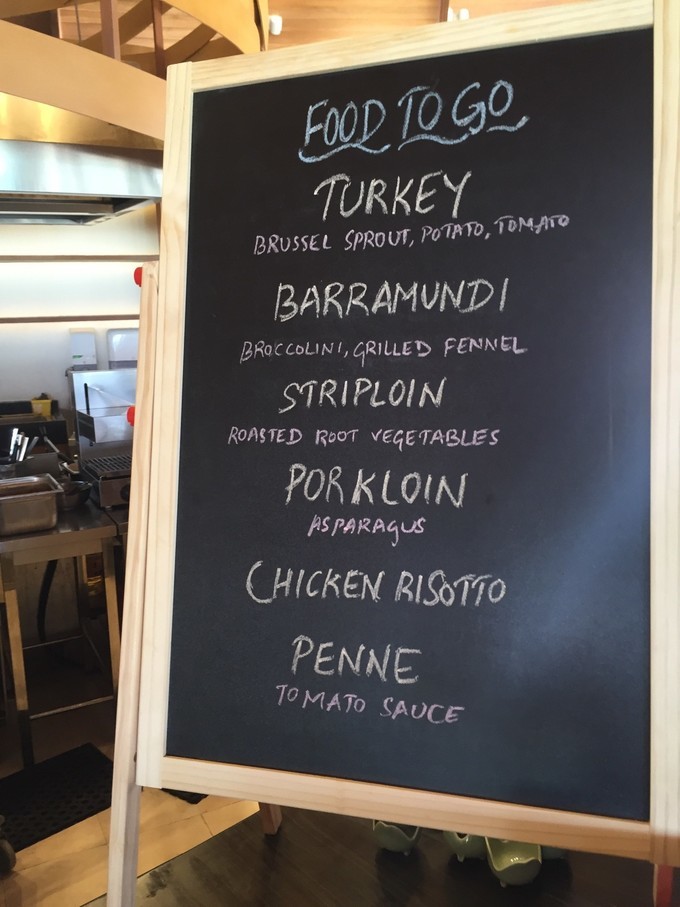 FOOD TO GO
TURKEY
BRUSSEL SPROUT, POTATO, TOMATO
BARRAMUNDI
BROCCOLINI, GRILLED FENNEL
STRIPLOIN
ROASTED ROOT VEGETABLES
PORKLOIN
ASPARAGUS
CHICKEN RISOTTO
PENNE
TOMATO SAUCE